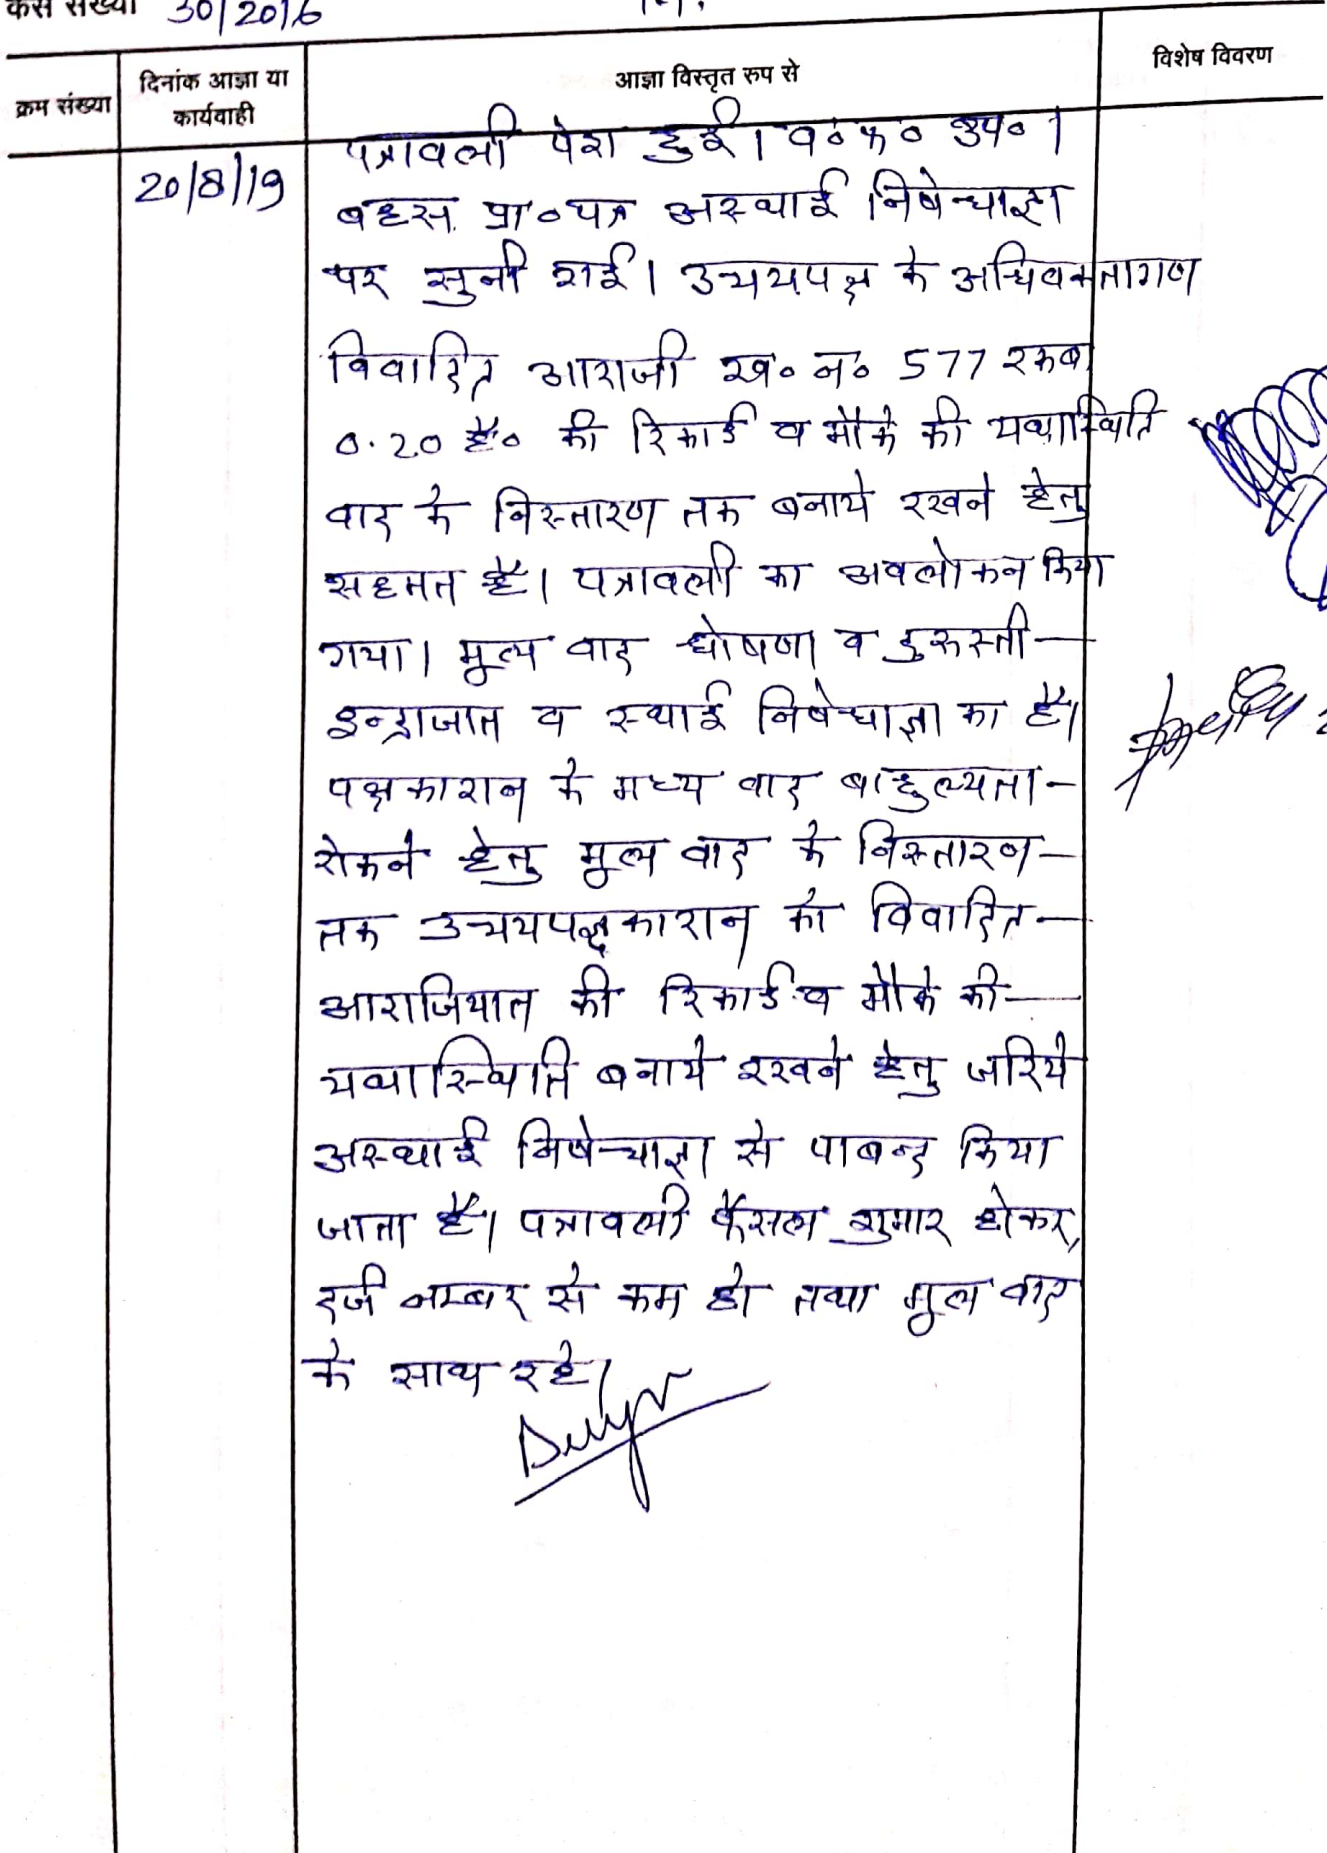 केस संख्या 30/2016
क्रम संख्या
दिनांक आज्ञा या
कार्यवाही
आज्ञा विस्तृत रुप से
विशेष विवरण
20/8/19
पत्रावली पेश हुई। व०क० उप०।
बहस प्रा०पत्र अस्थाई निषेधाज्ञा
पर सुनी गई। उभयपक्ष के अधिवक्तागण
विवादित आराजी ख० न० 577 रकबा
0.20 है० की रिकार्ड व मौके की यथास्थिति
वाद के निस्तारण तक बनाये रखने हेतु
सहमत है। पत्रावली का अवलोकन किया
गया। मूल वाद घोषणा व दुरूस्ती
इन्द्राजात व स्थाई निषेधाज्ञा का है।
पक्षकारान के मध्य वाद बाहुल्यता
रोकने हेतु मूल वाद के निस्तारण
तक उभयपक्षकारान को विवादित
आराजियात की रिकार्ड व मौके की
यथास्थिति बनाये रखने हेतु जरिये
अस्थाई निषेधाज्ञा से पाबन्द किया
जाता है। पत्रावली फैसल शुमार होकर,
दर्ज नम्बर से कम हो तथा मूल वाद
के साथ रहे।